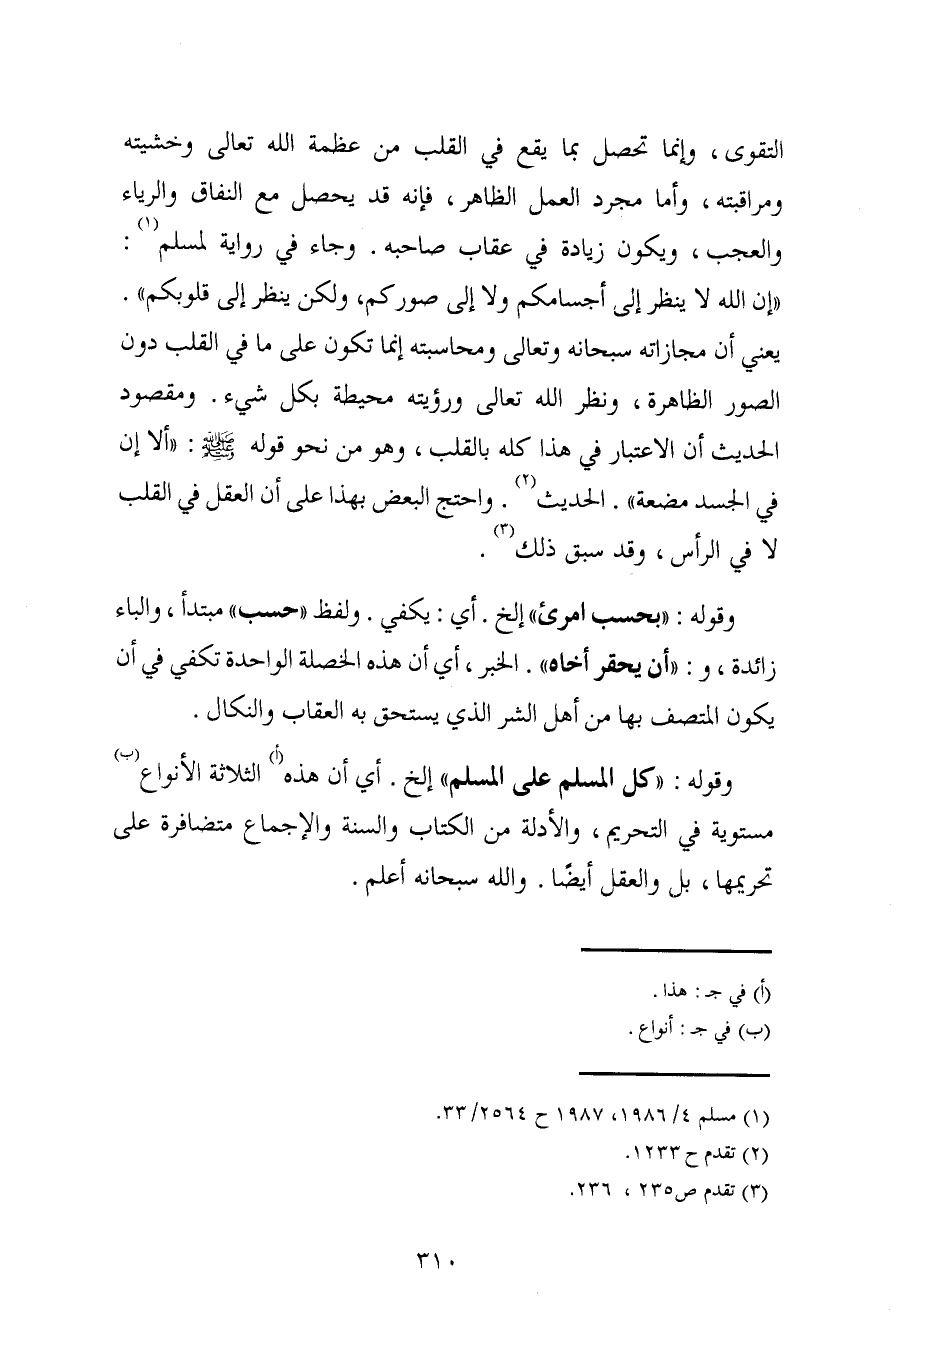 التقوى ، وإنما تحصل بما يقع في القلب من عظمة الله تعالى وخشيته
ومراقبته ، وأما مجرد العمل الظاهر ، فإنه قد يحصل مع النفاق والرياء
والعجب ، ويكون زيادة في عقاب صاحبه . وجاء في رواية لمسلم(١) :
«إن الله لا ينظر إلى أجسامكم ولا إلى صوركم، ولكن ينظر إلى قلوبكم» .
يعني أن مجازاته سبحانه وتعالى ومحاسبته إنما تكون على ما في القلب دون
الصور الظاهرة ، ونظر الله تعالى ورؤيته محيطة بكل شيء . ومقصود
الحديث أن الاعتبار في هذا كله بالقلب ، وهو من نحو قوله ﷺ : «ألا إن
في الجسد مضغة» . الحديث(٢) . واحتج البعض بهذا على أن العقل في القلب
لا في الرأس ، وقد سبق ذلك(٣) .
وقوله : «بحسب امرئ» إلخ . أي : يكفي . ولفظ «حسب» مبتدأ ، والباء
زائدة ، و : «أن يحقر أخاه» . الخبر ، أي أن هذه الخصلة الواحدة تكفي في أن
يكون المتصف بها من أهل الشر الذي يستحق به العقاب والنكال .
وقوله : «كل المسلم على المسلم» إلخ . أي أن هذه(أ) الثلاثة الأنواع(ب)
مستوية في التحريم ، والأدلة من الكتاب والسنة والإجماع متضافرة على
تحريمها ، بل والعقل أيضًا . والله سبحانه أعلم .
(أ) في جـ : هذا .
(ب) في جـ : أنواع .
(١) مسلم ٤/ ١٩٨٦، ١٩٨٧ ح ٢٥٦٤/ ٣٣.
(٢) تقدم ح ١٢٣٣.
(٣) تقدم ص٢٣٥ ، ٢٣٦.
٣١٠